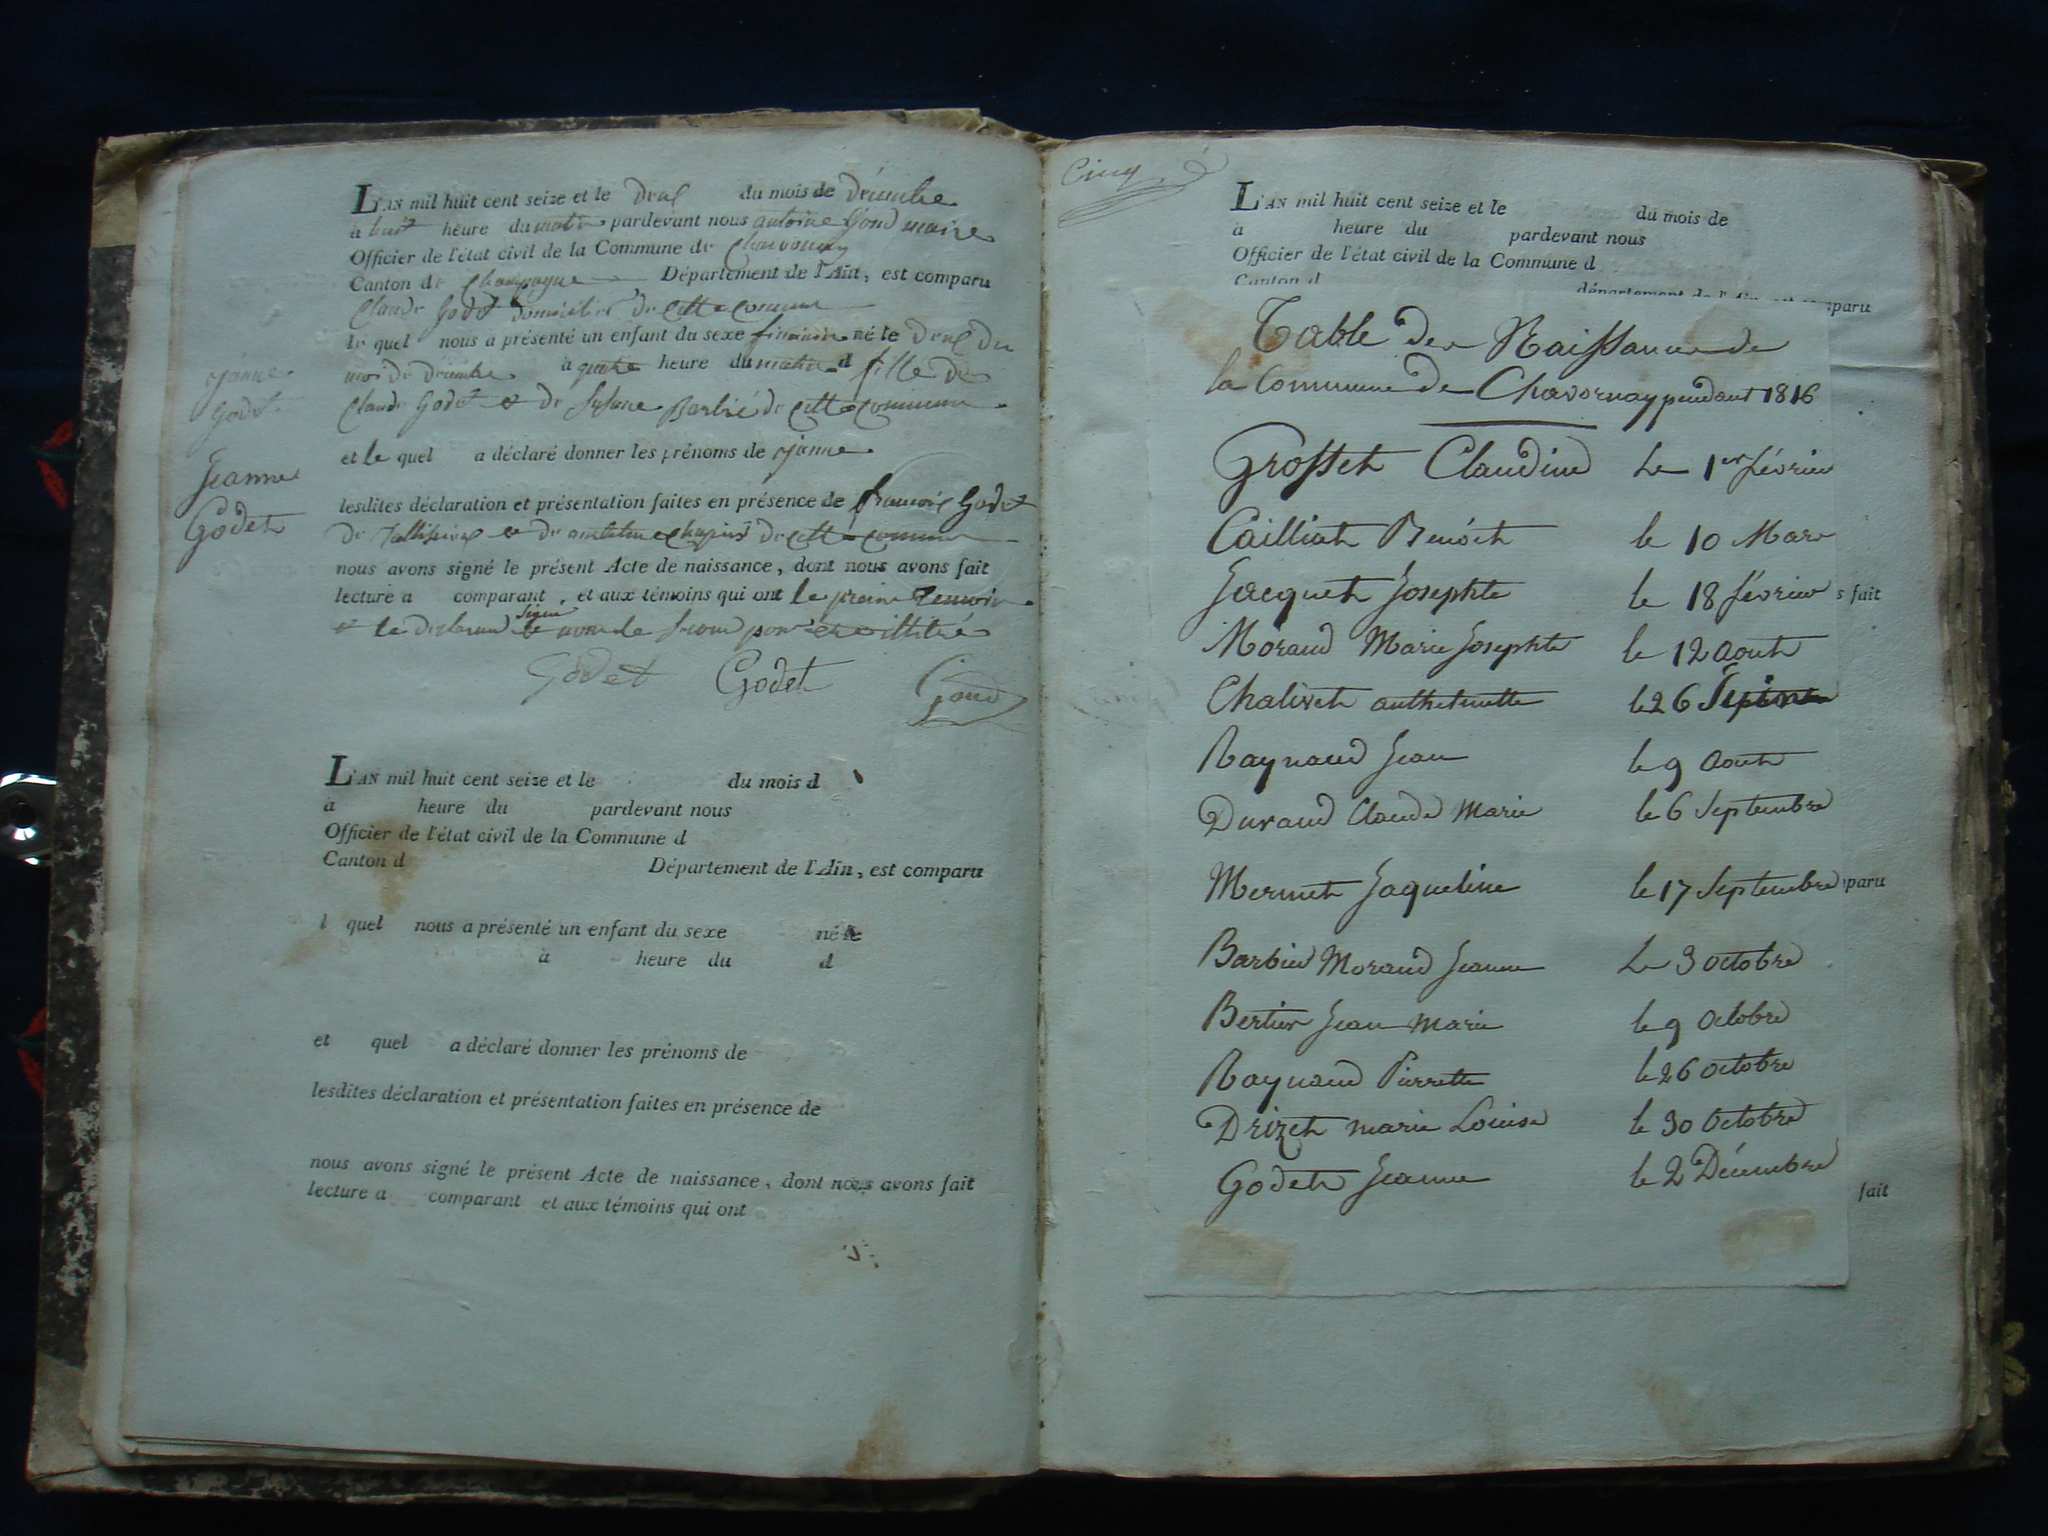 L'AN mil huit cent seize et le deux du mois de décembre
a huit heure du matin pardevant nous antoine Gond maire
Officier de l'état civil de la Commune de Chavornay
Canton de Champagne Département de l'Ain, est comparu
Claude Godet domicilié de cette commune
le quel nous a présenté un enfant du sexe féminin né le deux du
mois de décembre à quatre heure du matin d fille de
Claude Godet et de Susane Barbié de cette commune
et le quel a déclaré donner les prénoms de janne
lesdites déclaration et présentation faites en présence de francois Godet
de et de de cette commune
nous avons signé le présent Acte de naissance, dont nous avons fait
lecture a comparant, et aux témoins qui ont le
et le signé illitré
Godet Godet Gond
janne
godet
Jeanne
Godet
L'AN mil huit cent seize et le du mois d
a heure du pardevant nous
Officier de l'état civil de la Commune d
Canton d Département de l'Ain, est comparu
l quel nous a présenté un enfant du sexe né le
à heure du d
et quel a déclaré donner les prénoms de
lesdites déclaration et présentation faites en présence de
nous avons signé le présent Acte de naissance, dont nous avons fait
lecture a comparant et aux témoins qui ont
Cinq
L'AN mil huit cent seize et le du mois de
a heure du pardevant nous
Officier de l'état civil de la Commune d
Canton d département de l'Ain, est comparu
Table des Naissances de
la Commune de Chavornay pendant 1816
Grosset Claudine Le 1er février
Cailliat Benoit le 10 Mars
Jacquet Josephte le 18 février
s fait
Morand Marie Josephte le 12 aout
Chalivet anthelmette le 26
Raynaud Jean le 9 aout
Durand Claude Marie le 6 Septembre
Mermet Jaqueline le 17 Septembre
paru
Barbier Morand Jeanne Le 3 octobre
Bertier Jean Marie le 9 octobre
Raynaud Pierrette le 26 octobre
Drizet marie Louise le 30 octobre
Godet Jeanne le 2 Décembre
fait